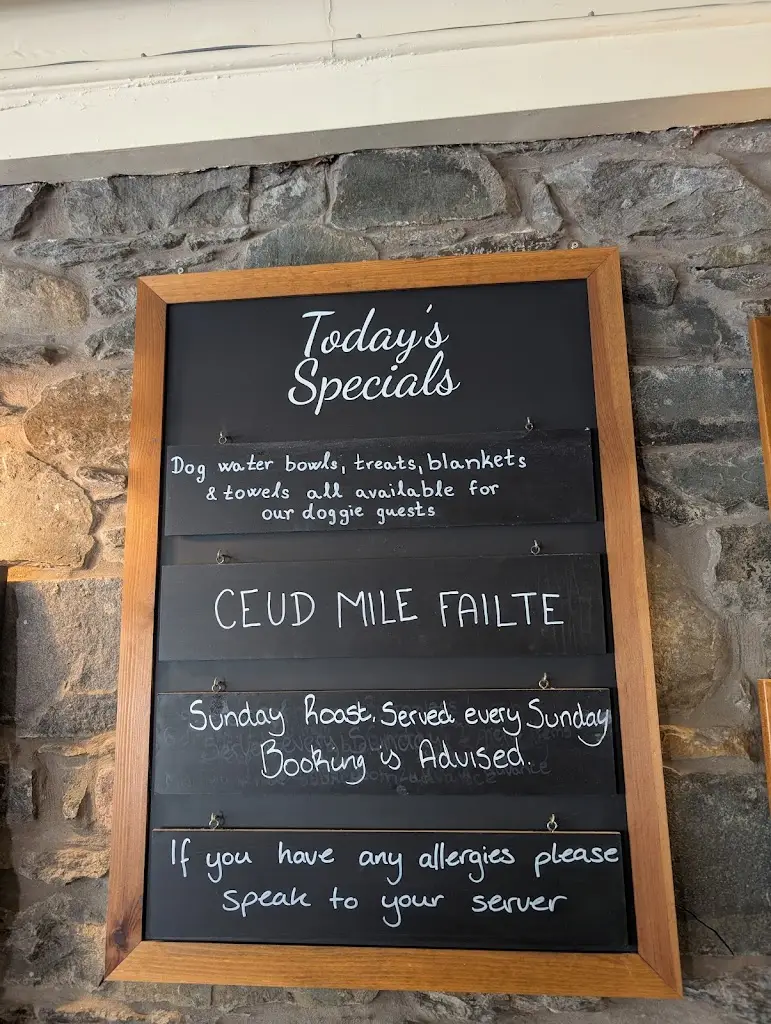 Today's
Specials
Dog water bowls, treats, blankets
& towels all available for
our doggie guests
CEUD MILE FAILTE
Sunday Roast. Served every Sunday
Booking is Advised.
If you have any allergies please
speak to your server